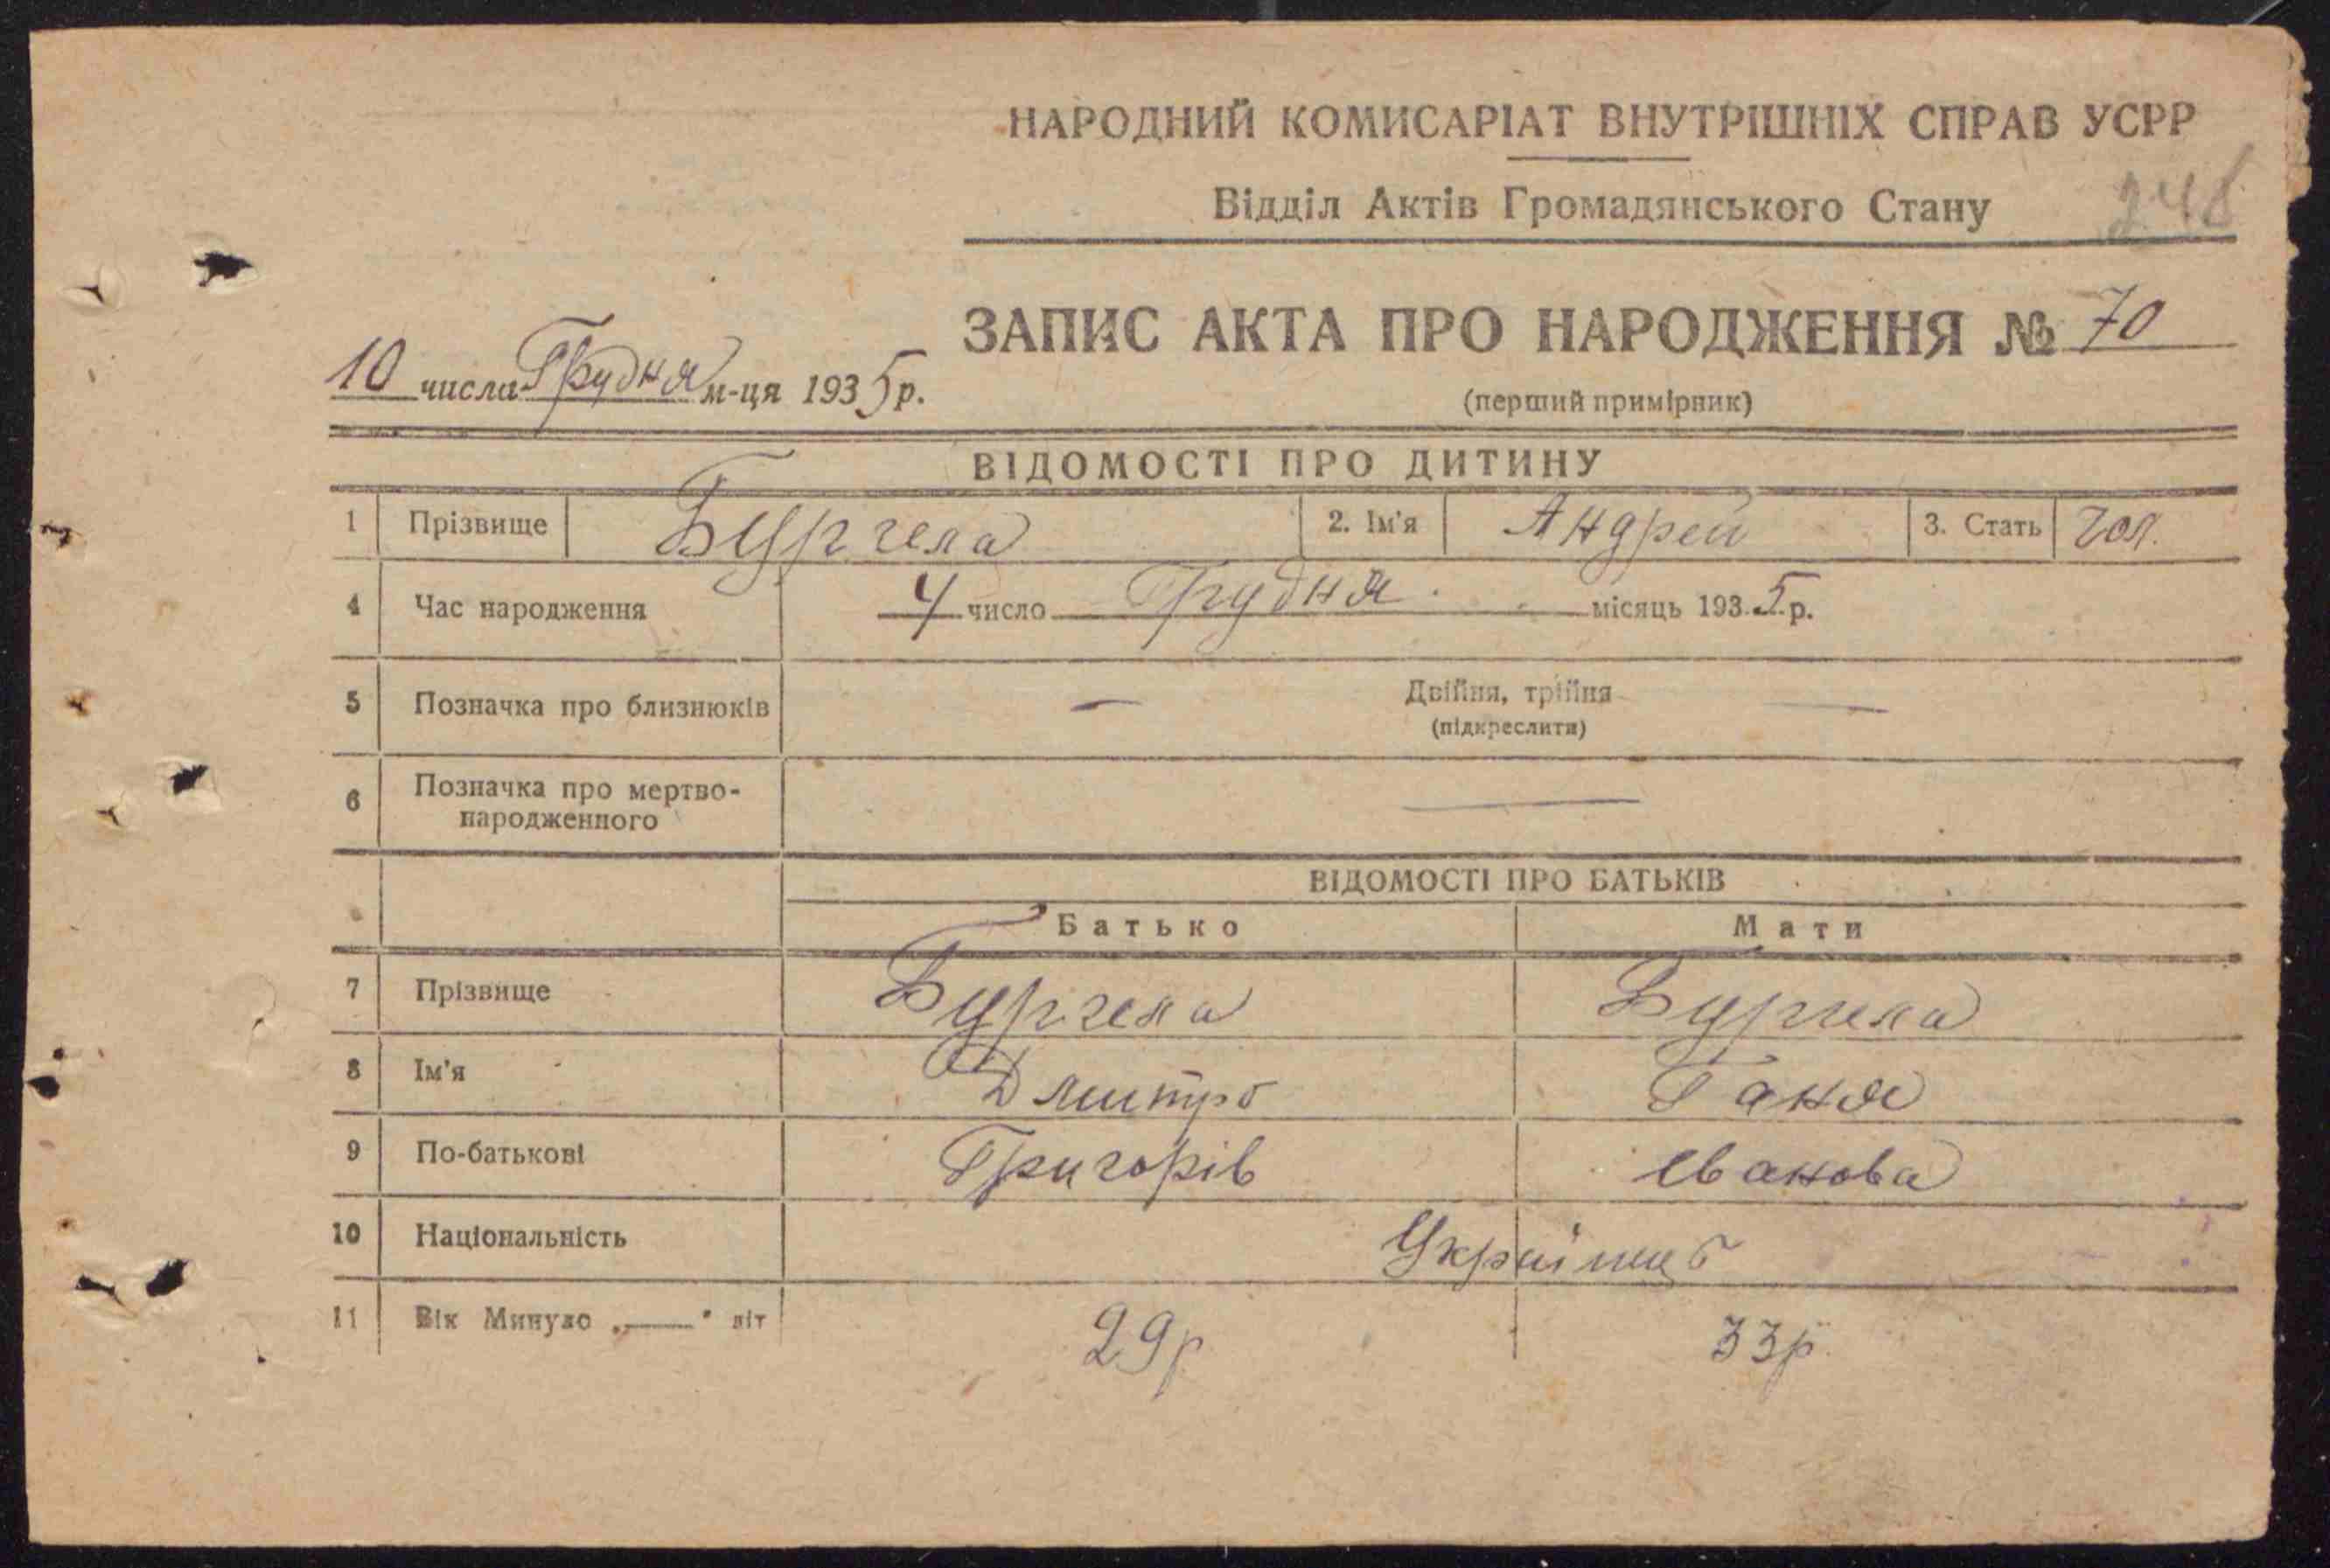 НАРОДНИЙ КОМИСАРІАТ ВНУТРІШНІХ СПРАВ УСРР
Відділ Актів Громадянського Стану
ЗАПИС АКТА ПРО НАРОДЖЕННЯ № 70
10 числа Грудня м-ця 1935 р.
(перший примірник)
ВІДОМОСТІ ПРО ДИТИНУ
1 Прізвище Бургела 2. Ім'я Андрей 3. Стать чол.
4 Час народження 4 число Грудня місяць 1935 р.
5 Позначка про близнюків — Двійня, трійня —
(підкреслити)
6 Позначка про мертво-
народженного —
ВІДОМОСТІ ПРО БАТЬКІВ
Батько Мати
7 Прізвище Бургела Бургела
8 Ім'я Дмитро Ганя
9 По-батькові Григорів Іванова
10 Національність
11 Вік Минуло „—" літ 29р 33р.